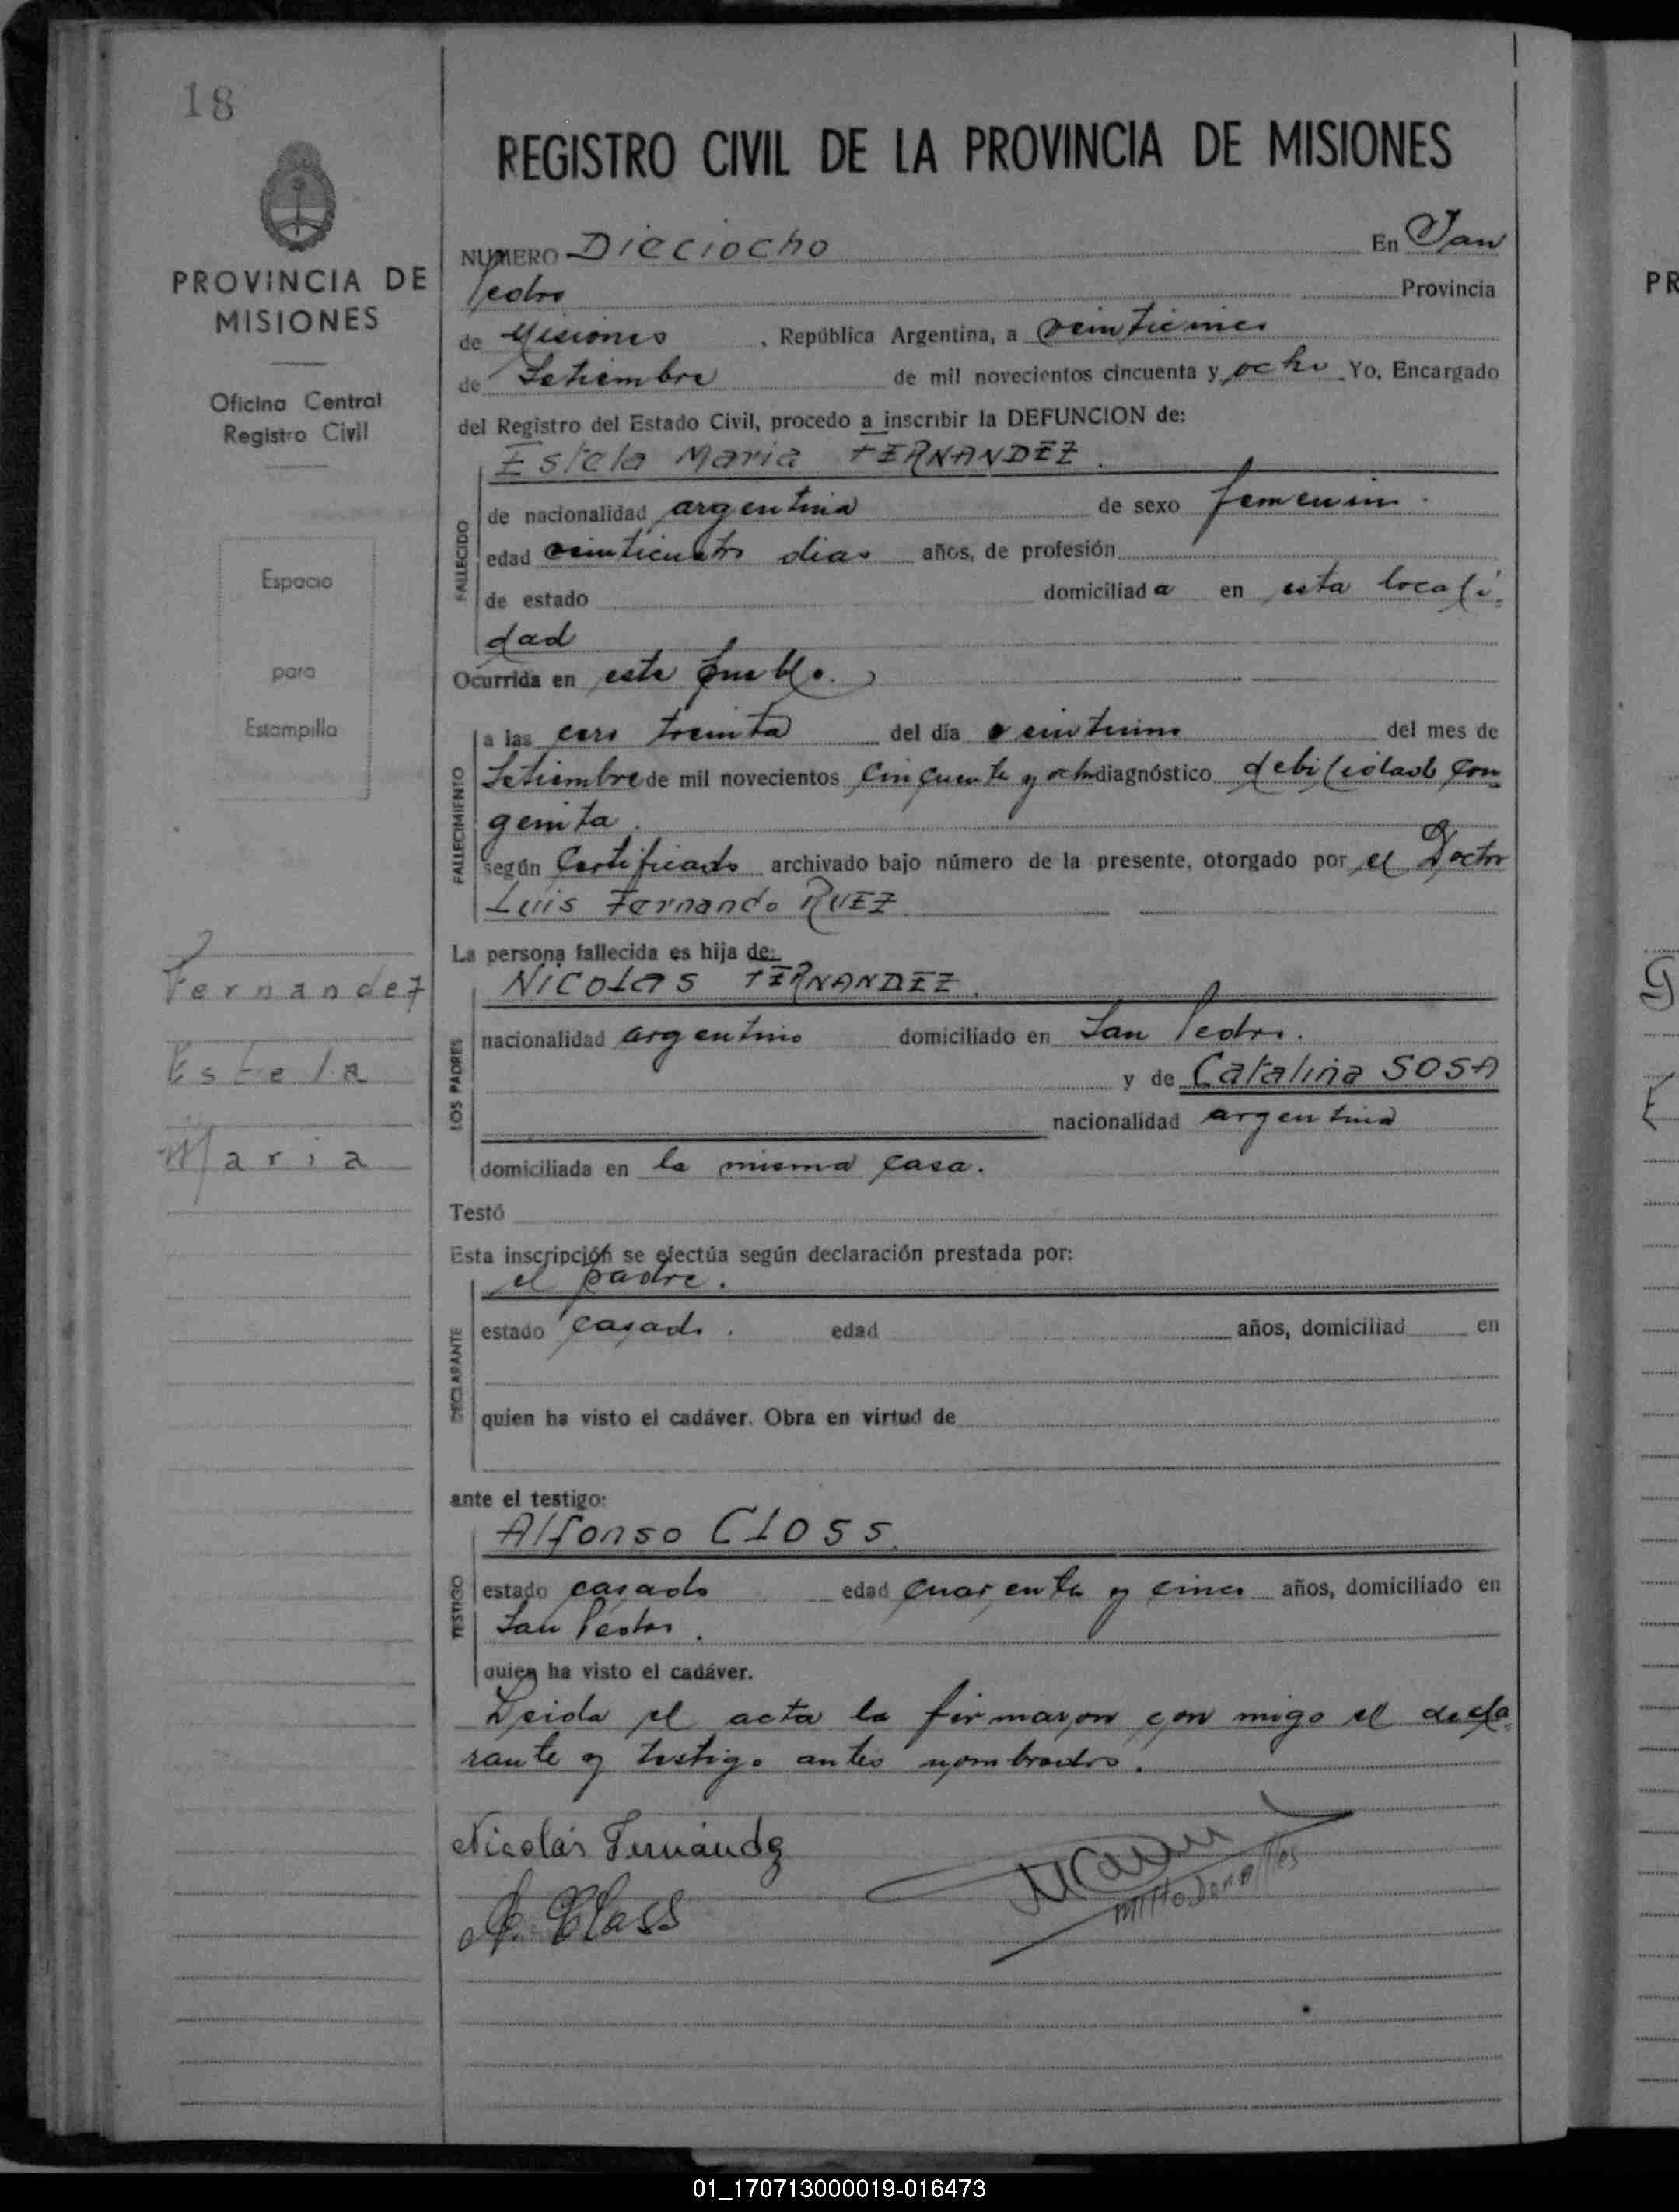 18
PROVINCIA DE
MISIONES
Oficina Central
Registro Civil
Espacio
para
Estampilla
Fernandez
Estela
Maria
REGISTRO CIVIL DE LA PROVINCIA DE MISIONES
NUMERO Dieciocho En San
Pedro Provincia
de Misiones, República Argentina, a veinticinco
de Setiembre de mil novecientos cincuenta y ocho Yo, Encargado
del Registro del Estado Civil, procedo a inscribir la DEFUNCION de:
Estela Maria FERNANDEZ.
FALLECIDO
de nacionalidad argentina de sexo femenino.
edad veinticuatro dias años, de profesión
de estado domiciliada en esta locali-
dad
Ocurrida en este pueblo.
FALLECIMIENTO
a las cero treinta del día del mes de
Setiembre de mil novecientos cincuenta y ocho diagnóstico debilidad con
genita.
según Certificado archivado bajo número de la presente, otorgado por el Doctor
Luis Fernando RUEZ
La persona fallecida es hija de:
LOS PADRES
Nicolas FERNANDEZ.
nacionalidad argentino domiciliado en San Pedro.
y de Catalina SOSA
nacionalidad argentina
domiciliada en la misma casa.
Testó
Esta inscripción se efectúa según declaración prestada por:
DECLARANTE
el padre.
estado casado. edad años, domiciliad en
quien ha visto el cadáver. Obra en virtud de
ante el testigo:
TESTIGO
Alfonso CLOSS.
estado casado edad cuarenta y cinco años, domiciliado en
San Pedro.
quien ha visto el cadáver.
Leida el acta la firmaron con migo el decla-
rante y testigo antes nombrados.
Nicolás Fernández
A. Closs
01_170713000019-016473